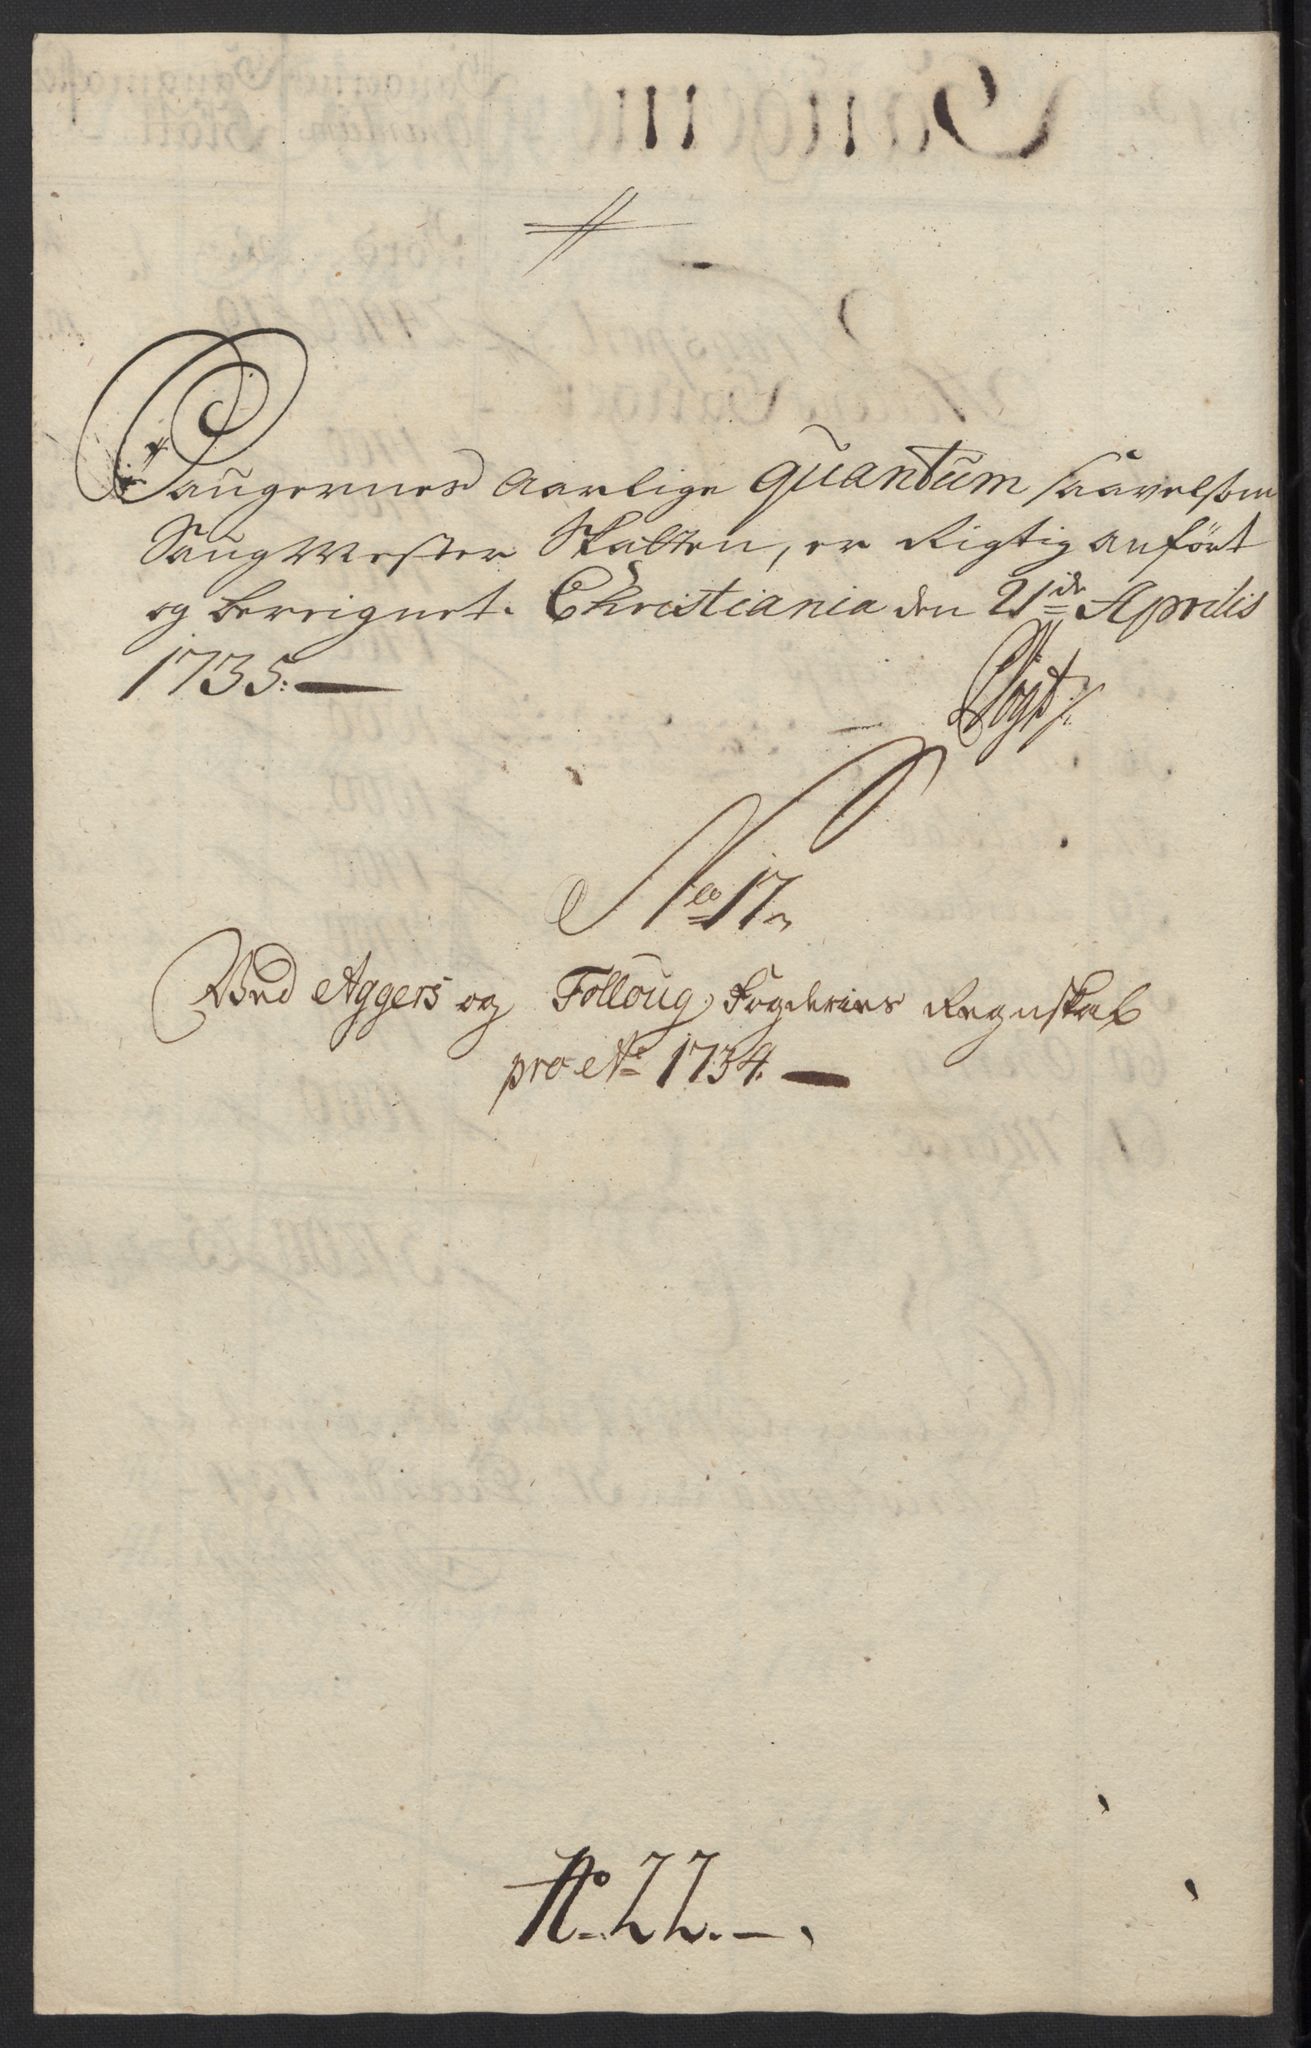 Saugernes Aarlige quantum saavelsom
Saug Mester Skatten, er Rigtig anfört
og bereignet. Christiania den 21de Aprilis
1735.
Vogt
No 17
Ved Aggers og Folloug Fogderies Regnskab
pro Ao 1734.
No. 22.